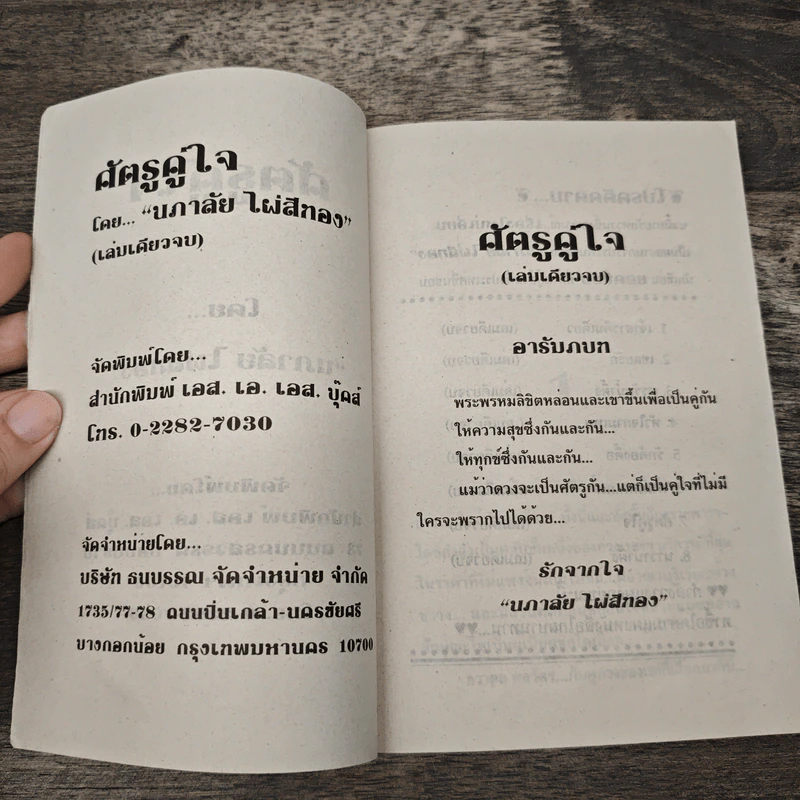 ศัตรูคู่ใจ
โดย... “นภาลัย ไผ่สีทอง”
(เล่มเดียวจบ)
จัดพิมพ์โดย...
สำนักพิมพ์ เอส. เอ. เอส. บุ๊คส์
โทร. 0-2282-7030
จัดจำหน่ายโดย...
บริษัท ธนบรรณ จัดจำหน่าย จำกัด
1735/77-78 ถนนปิ่นเกล้า-นครชัยศรี
บางกอกน้อย กรุงเทพมหานคร 10700
ศัตรูคู่ใจ
(เล่มเดียวจบ)
อารัมภบท
พระพรหมลิขิตหล่อนและเขาขึ้นเพื่อเป็นคู่กัน
ให้ความสุขซึ่งกันและกัน...
ให้ทุกข์ซึ่งกันและกัน...
แม้ว่าดวงจะเป็นศัตรูกัน...แต่ก็เป็นคู่ใจที่ไม่มี
ใครจะพรากไปได้ด้วย...
รักจากใจ
“นภาลัย ไผ่สีทอง”